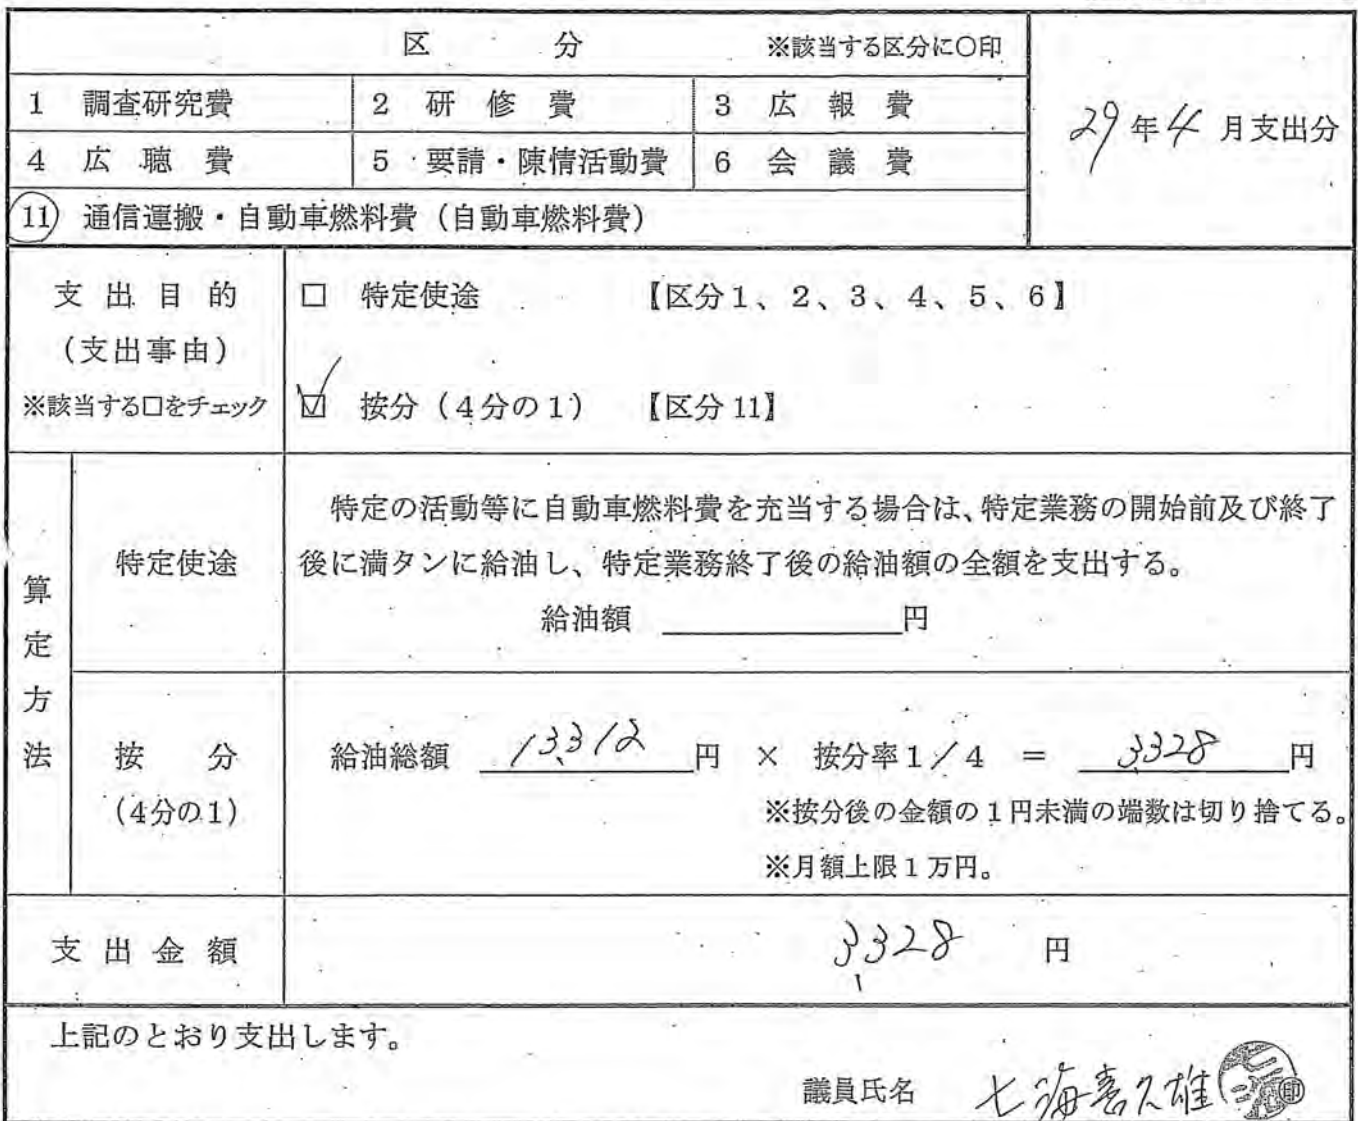 区 分 ※該当する区分に○印
29年4月支出分
1 調査研究費 2 研修費 3 広報費
4 広聴費 5 要請・陳情活動費 6 会議費
11 通信運搬・自動車燃料費（自動車燃料費）
支出目的
（支出事由）
※該当する□をチェック
□ 特定使途 【区分1、2、3、4、5、6】
☑ 按分（4分の1） 【区分11】
算定方法
特定使途
特定の活動等に自動車燃料費を充当する場合は、特定業務の開始前及び終了
後に満タンに給油し、特定業務終了後の給油額の全額を支出する。
給油額 円
按分
（4分の1）
給油総額 13,312 円 × 按分率1／4 = 3,328 円
※按分後の金額の1円未満の端数は切り捨てる。
※月額上限1万円。
支出金額 3,328 円
上記のとおり支出します。
議員氏名 七海喜久雄 印